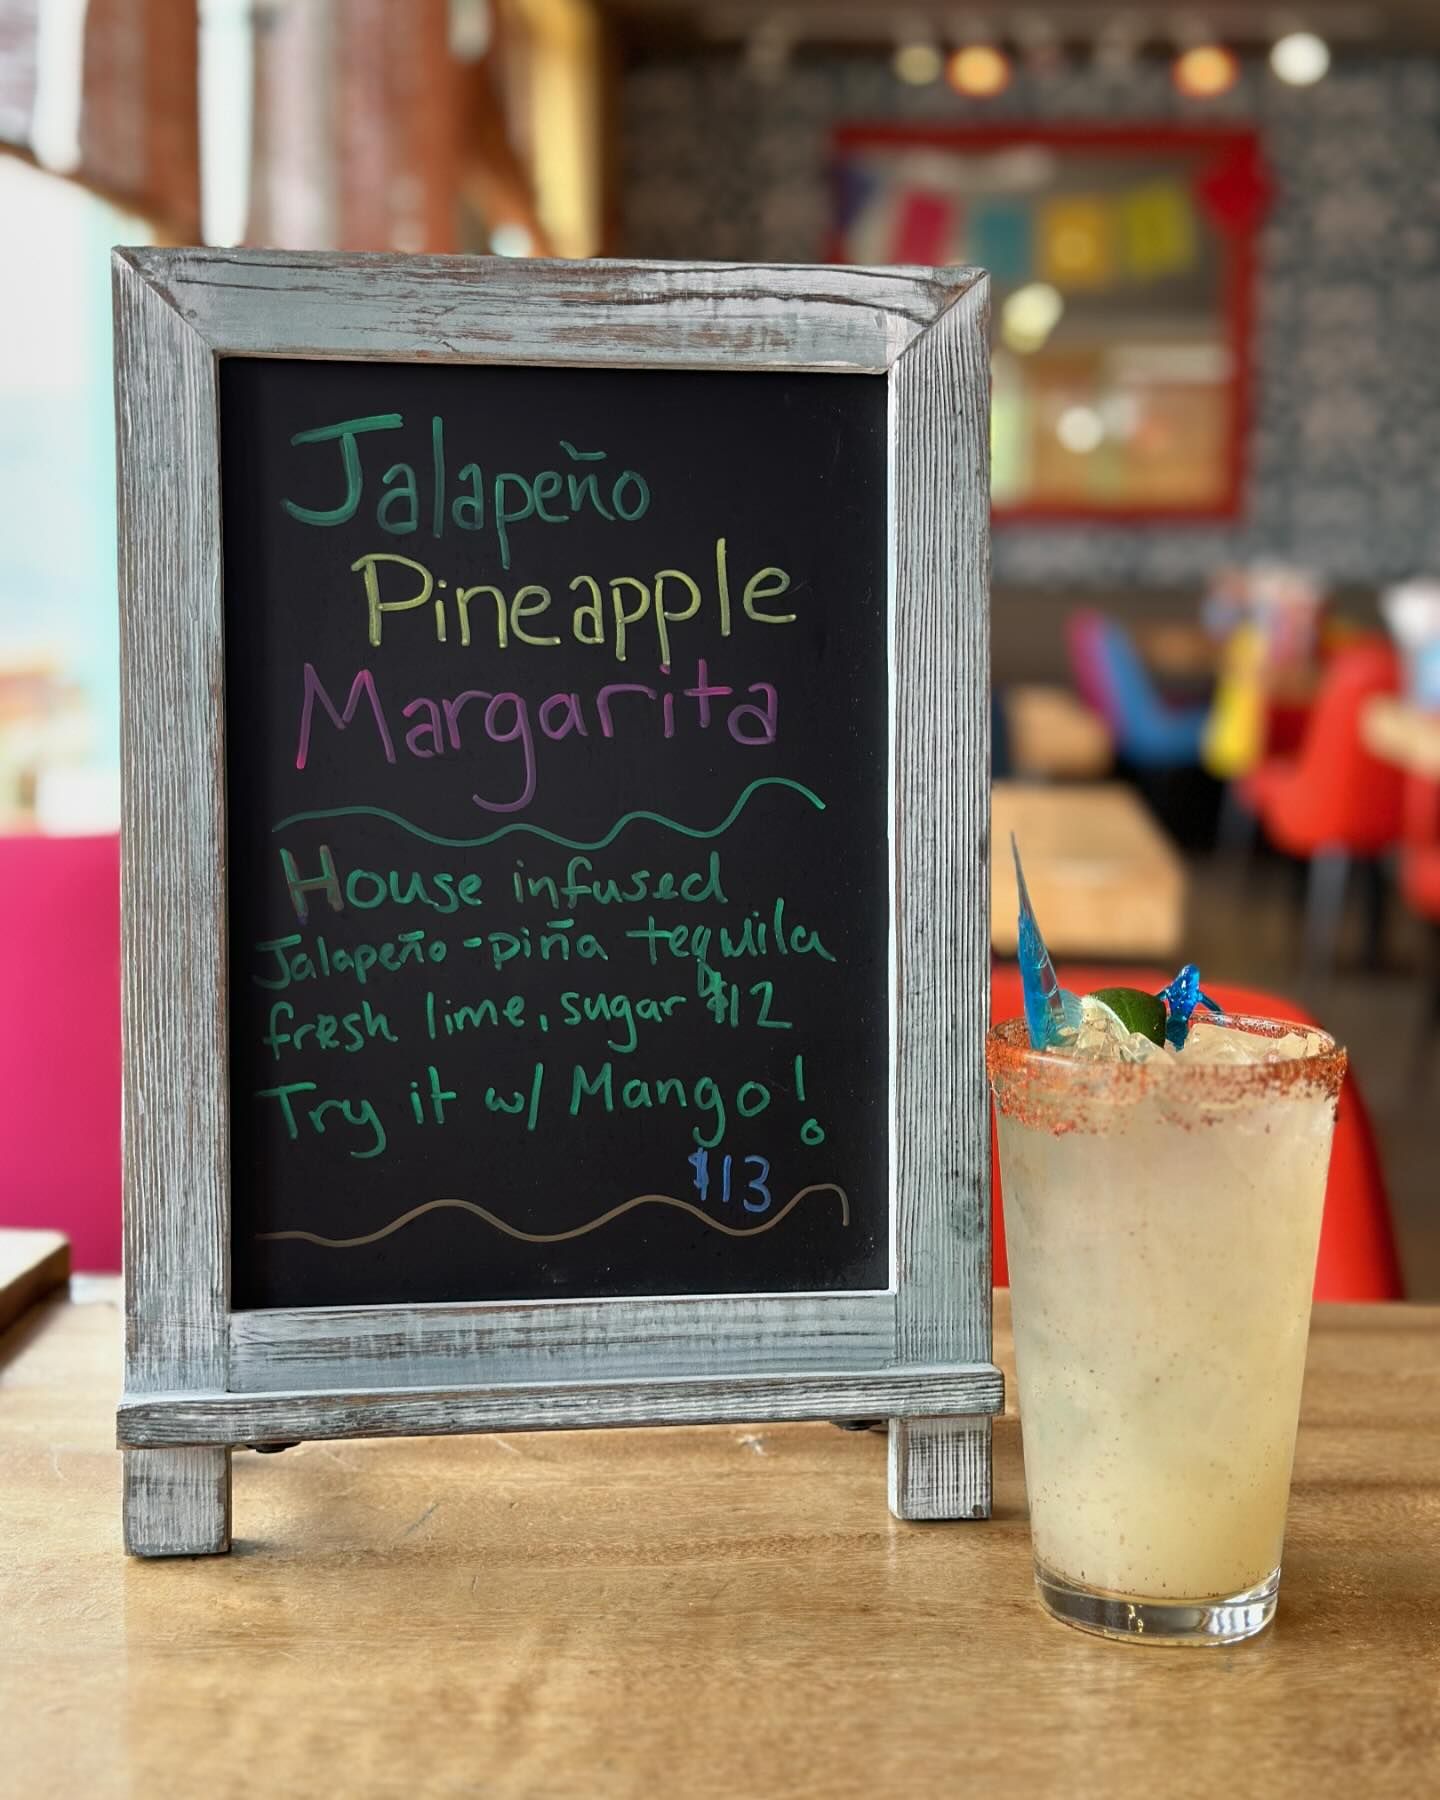 Jalapeño
Pineapple
Margarita
House infused
Jalapeño-piña tequila
fresh lime, sugar $12
Try it w/ Mango!
$13